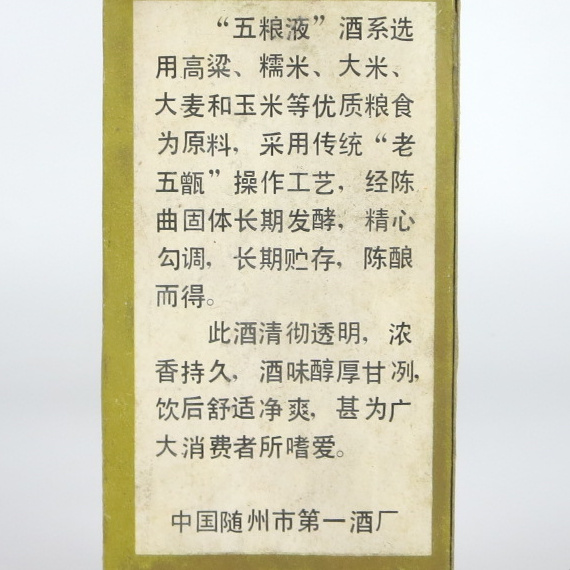 “五粮液”酒系选
用高粱、糯米、大米、
大麦和玉米等优质粮食
为原料，采用传统“老
五甑”操作工艺，经陈
曲固体长期发酵，精心
勾调，长期贮存，陈酿
而得。
此酒清彻透明，浓
香持久，酒味醇厚甘冽，
饮后舒适净爽，甚为广
大消费者所嗜爱。
中国随州市第一酒厂